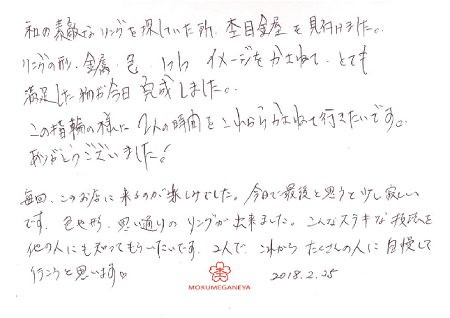 和の素敵なリングを探していた所、杢目金屋を見付けました。
リングの形、金属、色、1つ1つイメージをかさねて、とても
満足した物が今日完成しました。
この指輪の様に2人の時間をこれからかさねて行きたいです。
ありがとうございました!
毎回、このお店に来るのが楽しみでした。今日で最後と思うと少し寂しい
です。色や形、思い通りのリングが出来ました。こんなステキな技法を
他の人にも知ってもらいたいです。2人で、これからたくさんの人に自慢して
行こうと思います♡
MOKUMEGANEYA
2018.2.25